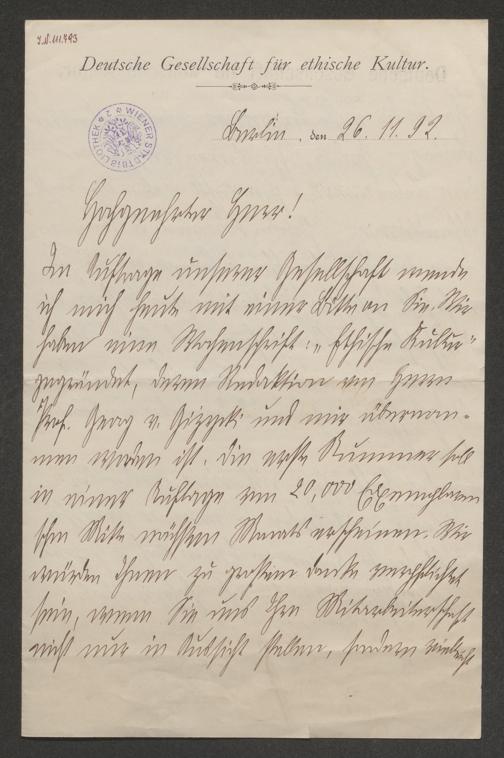 I.N. 111.793
Deutsche Gesellschaft für ethische Kultur.
WIENER STADTBIBLIOTHEK
Berlin, den 26. 11. 92.
Hochgeehrter Herr!
Im Auftrage unserer Gesellschaft wende
ich mich heute mit einer Bitte an Sie. Wir
haben eine Wochenschrift: „Ethische Kultur“
gegründet, deren Redaktion von Herrn
Prof. Georg v. Gizycki und mir übernom-
men worden ist. Die erste Nummer soll
in einer Auflage von 20,000 Exemplaren
schon Mitte nächsten Monats erscheinen. Wir
würden Ihnen zu grossem Danke verpflichtet
sein, wenn Sie uns Ihre Mitarbeiterschaft
nicht nur in Aussicht stellen, sondern vielleicht